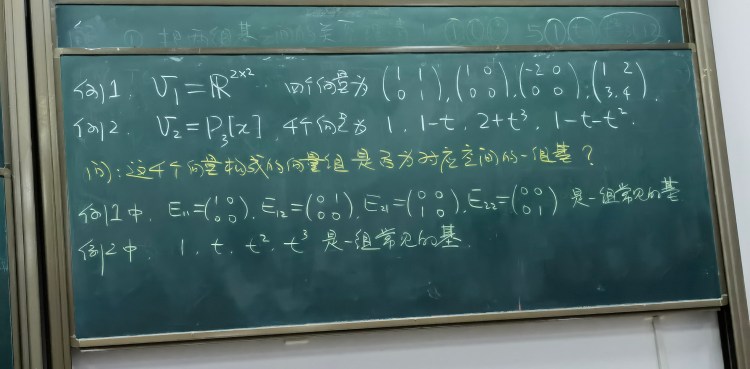 例1. V₁=ℝ²ˣ² 四个向量为 (1 1; 0 1), (1 0; 0 0), (-2 0; 0 0), (1 2; 3, 4).
例2. V₂=P₃[x] 4个向量为 1, 1-t, 2+t³, 1-t-t².
问:这4个向量构成的向量组是否为对应空间的一组基?
例1中, E₁₁=(1 0; 0 0), E₁₂=(0 1; 0 0), E₂₁=(0 0; 1 0), E₂₂=(0 0; 0 1) 是一组常见的基
例2中, 1, t, t², t³ 是一组常见的基.